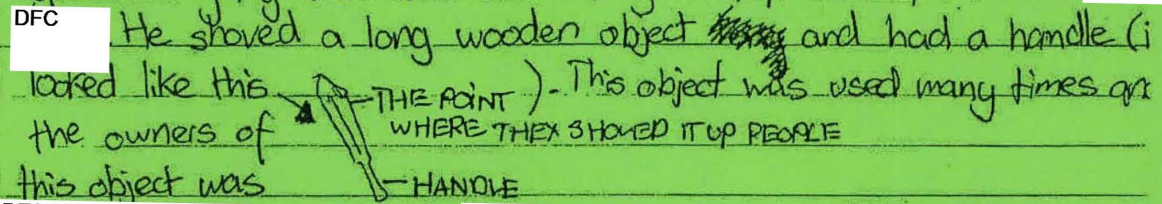 DFC
He shoved a long wooden object and had a handle (i
looked like this
THE POINT
WHERE THEY SHOVED IT UP PEOPLE
HANDLE
). This object was used many times
the owners of
this object was